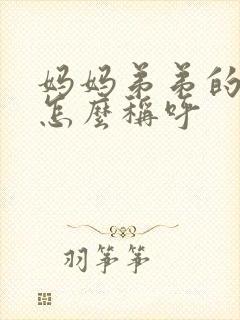 妈妈弟弟的
怎麼稱呼
羽箏箏